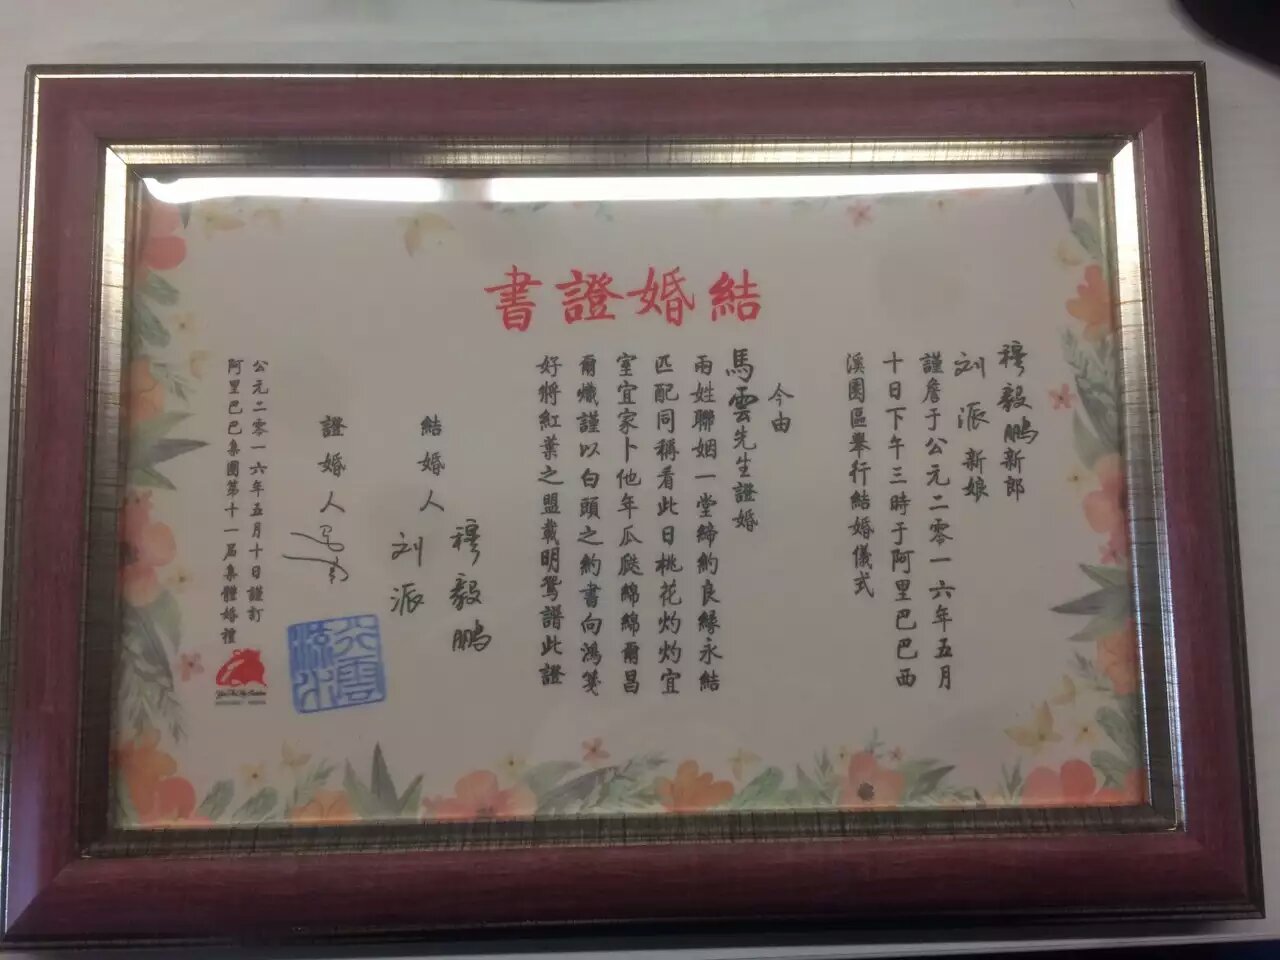 結婚證書
穆毅鹏新郎
刘派新娘
謹詹于公元二零一六年五月
十日下午三時于阿里巴巴西
溪園區舉行結婚儀式
今由
馬雲先生證婚
兩姓聯姻一堂締約良緣永結
匹配同稱看此日桃花灼灼宜
室宜家卜他年瓜瓞綿綿爾昌
爾熾謹以白頭之約書向鴻箋
好將紅葉之盟載明鴛譜此證
結婚人
穆毅鹏
刘派
證婚人
行雲
流水
公元二零一六年五月十日謹訂
阿里巴巴集團第十一届集體婚禮